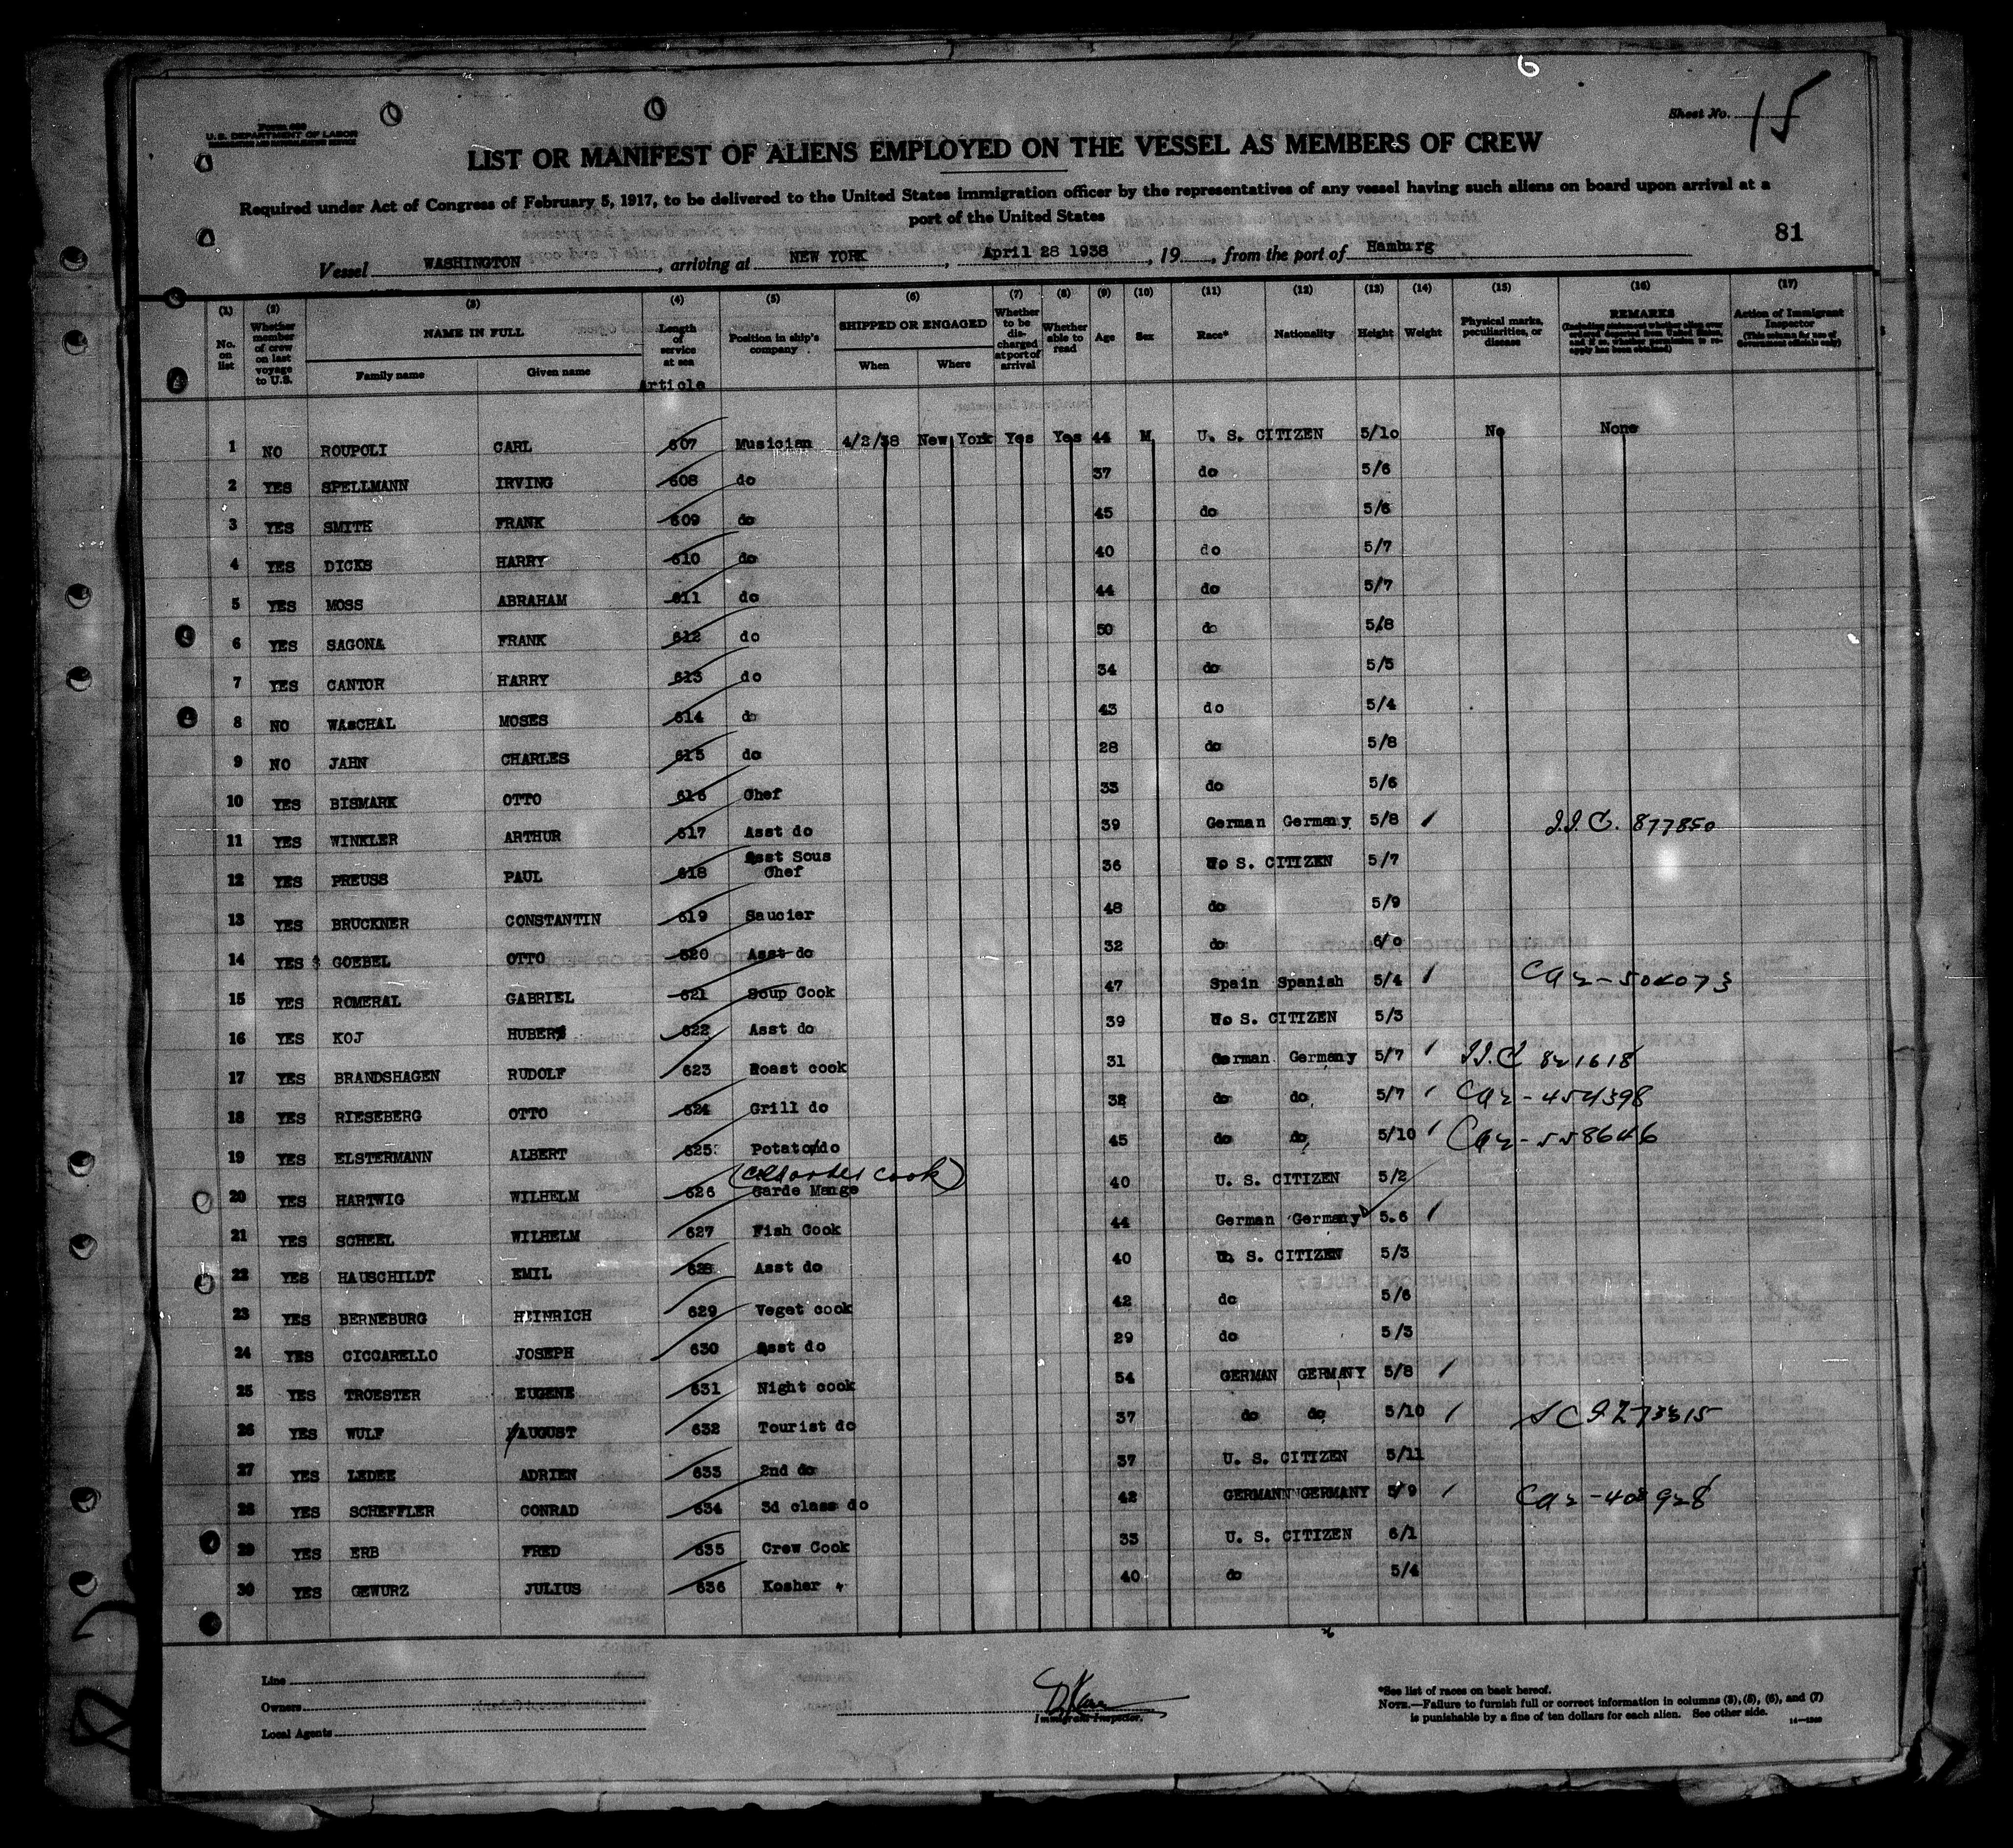 6
Form 680
U.S. DEPARTMENT OF LABOR
IMMIGRATION AND NATURALIZATION SERVICE
Sheet No. 15
LIST OR MANIFEST OF ALIENS EMPLOYED ON THE VESSEL AS MEMBERS OF CREW
Required under Act of Congress of February 5, 1917, to be delivered to the United States immigration officer by the representatives of any vessel having such aliens on board upon arrival at a
port of the United States
81
Vessel WASHINGTON, arriving at NEW YORK, April 28 1938, 19, from the port of Hamburg
(1) (2) (3) (4) (5) (6) (7) (8) (9) (10) (11) (12) (13) (14) (15) (16) (17)
No. on list
Whether member of crew on last voyage to U.S.
NAME IN FULL
Family name Given name
Length of service at sea
Article
Position in ship's company
SHIPPED OR ENGAGED
When Where
Whether to be discharged at port of arrival
Whether able to read
Age Sex Race* Nationality Height Weight
Physical marks, peculiarities, or disease
REMARKS
(Including statement whether alien ever ordered deported from United States, and if so, whether permission to reapply has been obtained)
Action of Immigrant Inspector
(This column for use of Government officials only)
1 NO ROUPOLI CARL 607 Musician 4/2/38 New York Yes Yes 44 M U. S. CITIZEN 5/10 No None
2 YES SPELLMANN IRVING 608 do 37 do 5/6
3 YES SMITH FRANK 609 do 45 do 5/6
4 YES DICKS HARRY 610 do 40 do 5/7
5 YES MOSS ABRAHAM 611 do 44 do 5/7
6 YES SAGONA FRANK 612 do 50 do 5/8
7 YES CANTOR HARRY 613 do 34 do 5/5
8 NO WASCHAL MOSES 614 do 43 do 5/4
9 NO JAHN CHARLES 615 do 28 do 5/8
10 YES BISMARK OTTO 616 Chef 33 do 5/6
11 YES WINKLER ARTHUR 617 Asst do 39 German Germany 5/8 877850
12 YES PREUSS PAUL 618 Asst Sous Chef 36 U. S. CITIZEN 5/7
13 YES BRUCKNER CONSTANTIN 619 Saucier 48 do 5/9
14 YES GOEBEL OTTO 620 Asst do 32 do 6/0
15 YES ROMERAL GABRIEL 621 Soup Cook 47 Spain Spanish 5/4
16 YES KOJ HUBERT 622 Asst do 39 U. S. CITIZEN 5/3
17 YES BRANDSHAGEN RUDOLF 623 Roast cook 31 German Germany 5/7 821618
18 YES RIESEBERG OTTO 624 Grill do 32 do do 5/7 454398
19 YES ELSTERMANN ALBERT 625 Potato do 45 do do 5/10 558646
20 YES HARTWIG WILHELM 626 Garde Mange 40 U. S. CITIZEN 5/2
21 YES SCHEEL WILHELM 627 Fish Cook 44 German Germany 5.6
22 YES HAUSCHILDT EMIL 628 Asst do 40 U. S. CITIZEN 5/3
23 YES BERNEBURG HEINRICH 629 Veget cook 42 do 5/6
24 YES CICCARELLO JOSEPH 630 Asst do 29 do 5/3
25 YES TROESTER EUGENE 631 Night cook 54 GERMAN GERMANY 5/8
26 YES WULF AUGUST 632 Tourist do 37 do do 5/10 273315
27 YES LEDEE ADRIEN 633 2nd do 37 U. S. CITIZEN 5/11
28 YES SCHEFFLER CONRAD 634 3d class do 42 GERMAN GERMANY 5/9 408928
29 YES ERB FRED 635 Crew Cook 33 U. S. CITIZEN 6/1
30 YES GEWURZ JULIUS 636 Kosher 40 do 5/4
Line
Owners
Local Agents
Immigrant Inspector.
*See list of races on back hereof.
NOTE.—Failure to furnish full or correct information in columns (3), (5), (6), and (7)
is punishable by a fine of ten dollars for each alien. See other side.